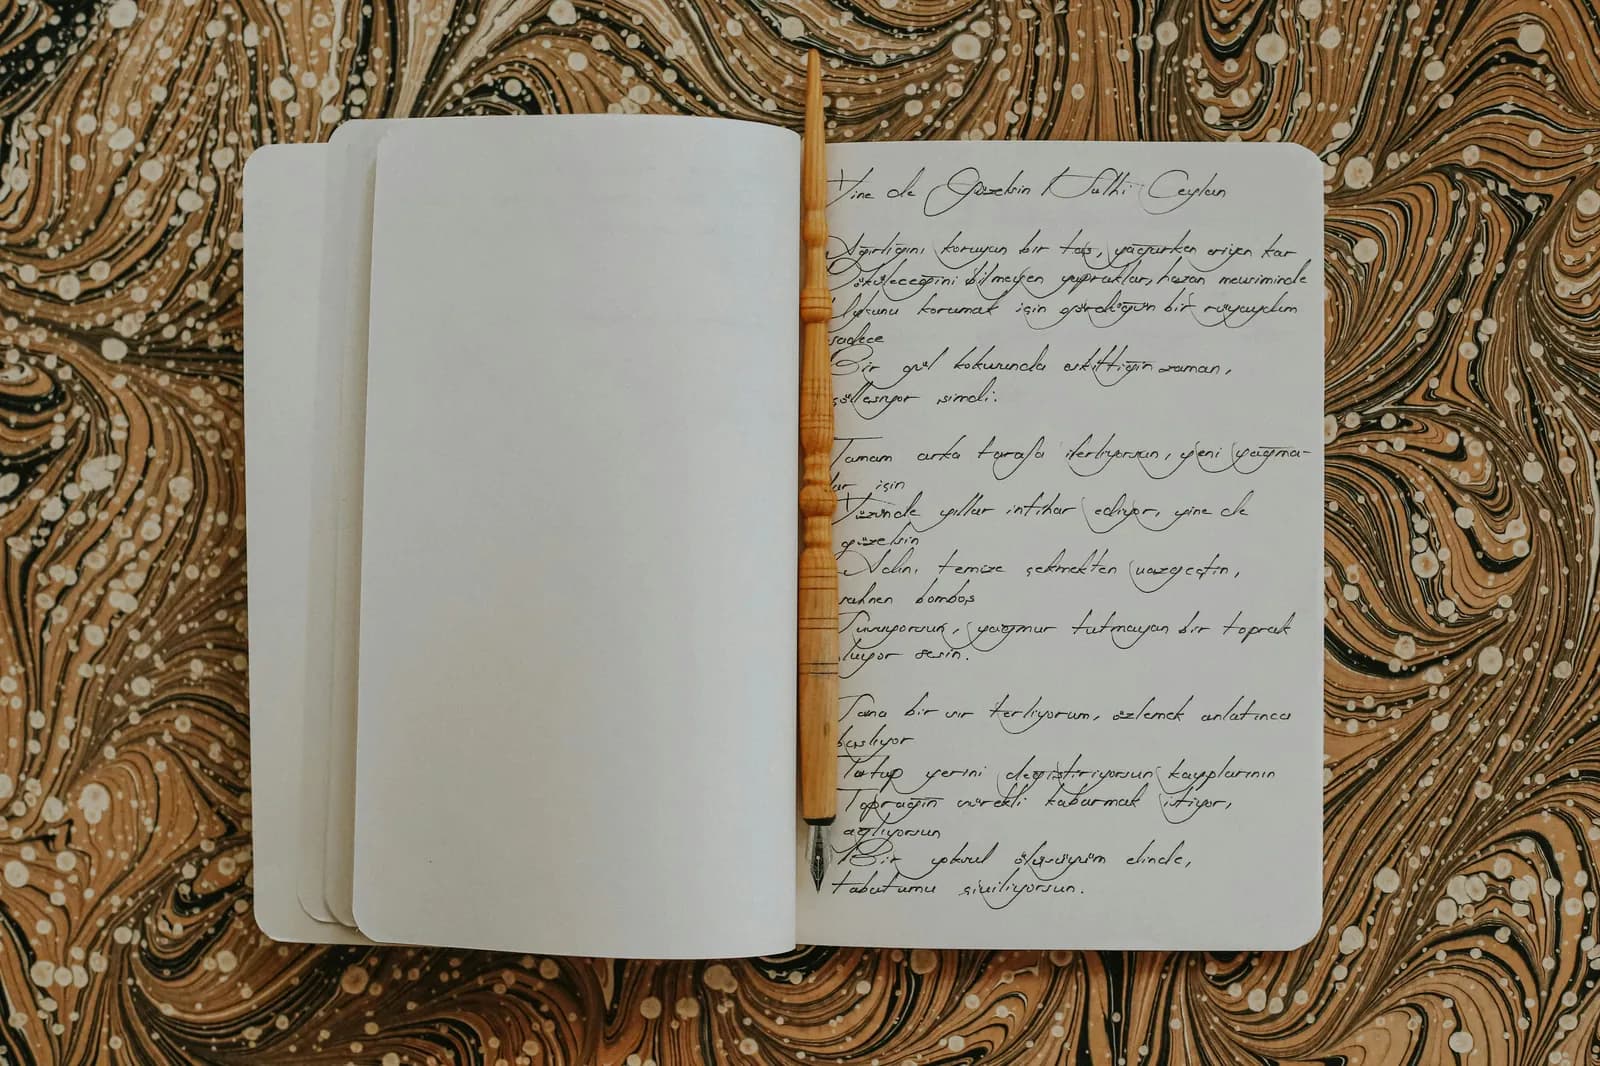 Yine de Güzelsin Nulhi Ceylan
Ağırlığını koruyan bir taş, yağarken eriyen kar
Döküleceğini bilmeyen yapraklar, hazan mevsiminde
Uykunu korumak için gördüğün bir rüyaydım
sadece
Bir gül kokusunda eskittiğin zaman,
çölleşiyor şimdi.
Tamam arka tarafa ilerliyorsun, yeni yağma-
lar için
Yüzünde yıllar intihar ediyor, yine de
güzelsin
Adını temize çekmekten vazgeçtin,
sahnen bomboş
Susuyorsun, yağmur tutmayan bir toprak
oluyor sesin.
Sana bir sır veriyorum, özlemek anlatınca
başlıyor
Tutup yerini değiştiriyorsun kayıplarının
Toprağın sürekli kabarmak istiyor,
ağlıyorsun
Bir yoksul ölüsüyüm elinde,
tabutumu çiviliyorsun.